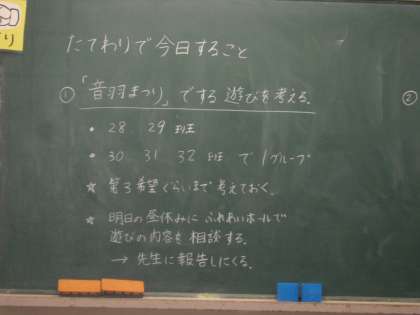 たてわりで今日すること
①「音羽まつり」でする遊びを考える。
・28、29班
・30、31、32班で1グループ
☆第3希望ぐらいまで考えておく。
☆明日の昼休みにふれあいホールで
遊びの内容を相談する。
→先生に報告しにくる。
②
り